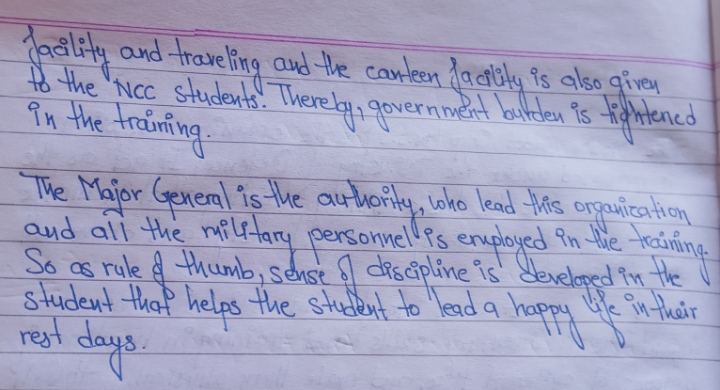 facility and traveling and the canteen facility is also given
to the NCC students. Thereby, government burden is tightened
in the training.
The Major General is the authority, who lead this organization
and all the military personnel is employed in the training.
So as rule of thumb, sense of discipline is developed in the
student that helps the student to lead a happy life in their
rest days.